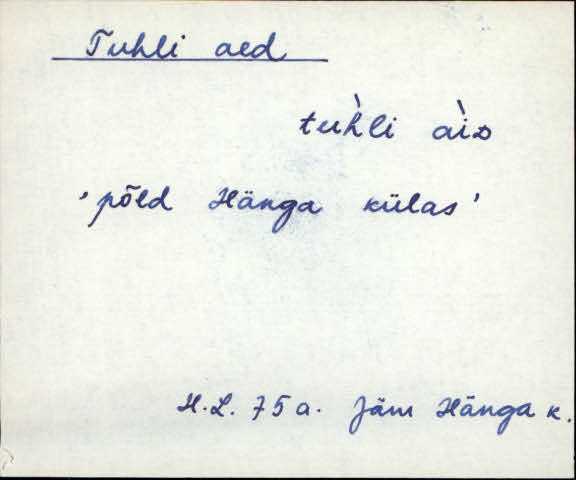 Tuhli aed
tuh̀li aìᴅ
'põld Hänga külas'
H.L. 75a. Jäm Hänga k.